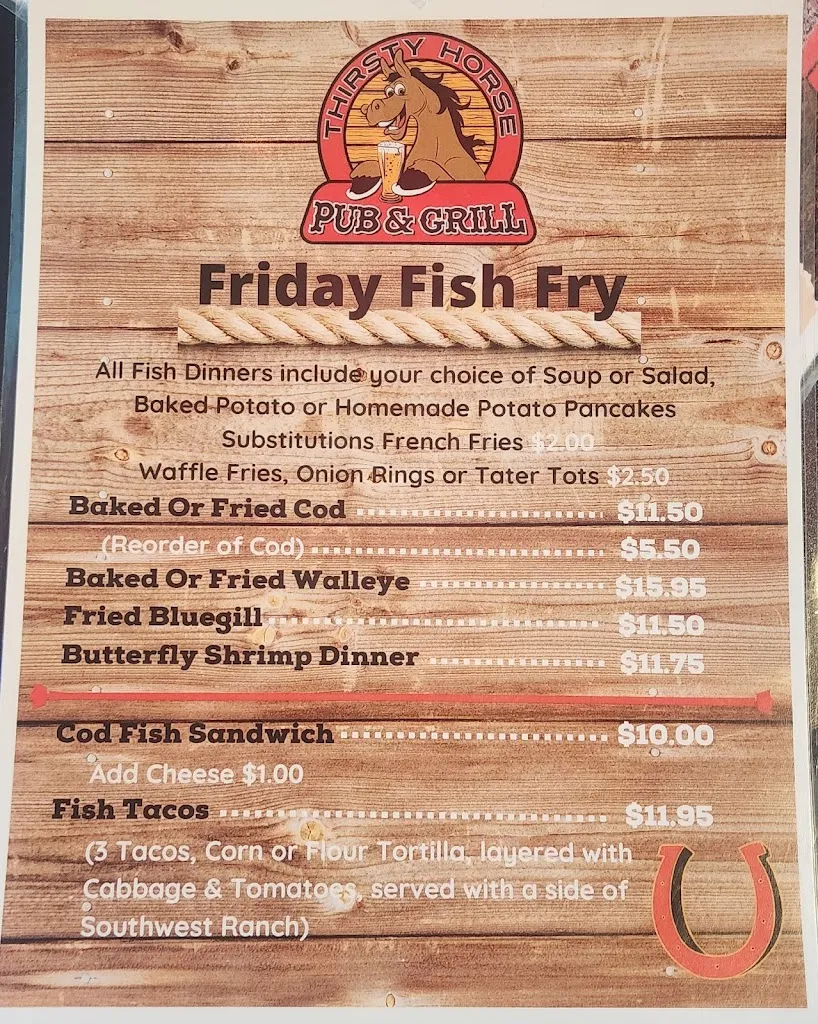 THIRSTY HORSE
PUB & GRILL
Friday Fish Fry
All Fish Dinners include your choice of Soup or Salad,
Baked Potato or Homemade Potato Pancakes
Substitutions French Fries $2.00
Waffle Fries, Onion Rings or Tater Tots $2.50
Baked Or Fried Cod $11.50
(Reorder of Cod) $5.50
Baked Or Fried Walleye $15.95
Fried Bluegill $11.50
Butterfly Shrimp Dinner $11.75
Cod Fish Sandwich $10.00
Add Cheese $1.00
Fish Tacos $11.95
(3 Tacos, Corn or Flour Tortilla, layered with
Cabbage & Tomatoes, served with a side of
Southwest Ranch)